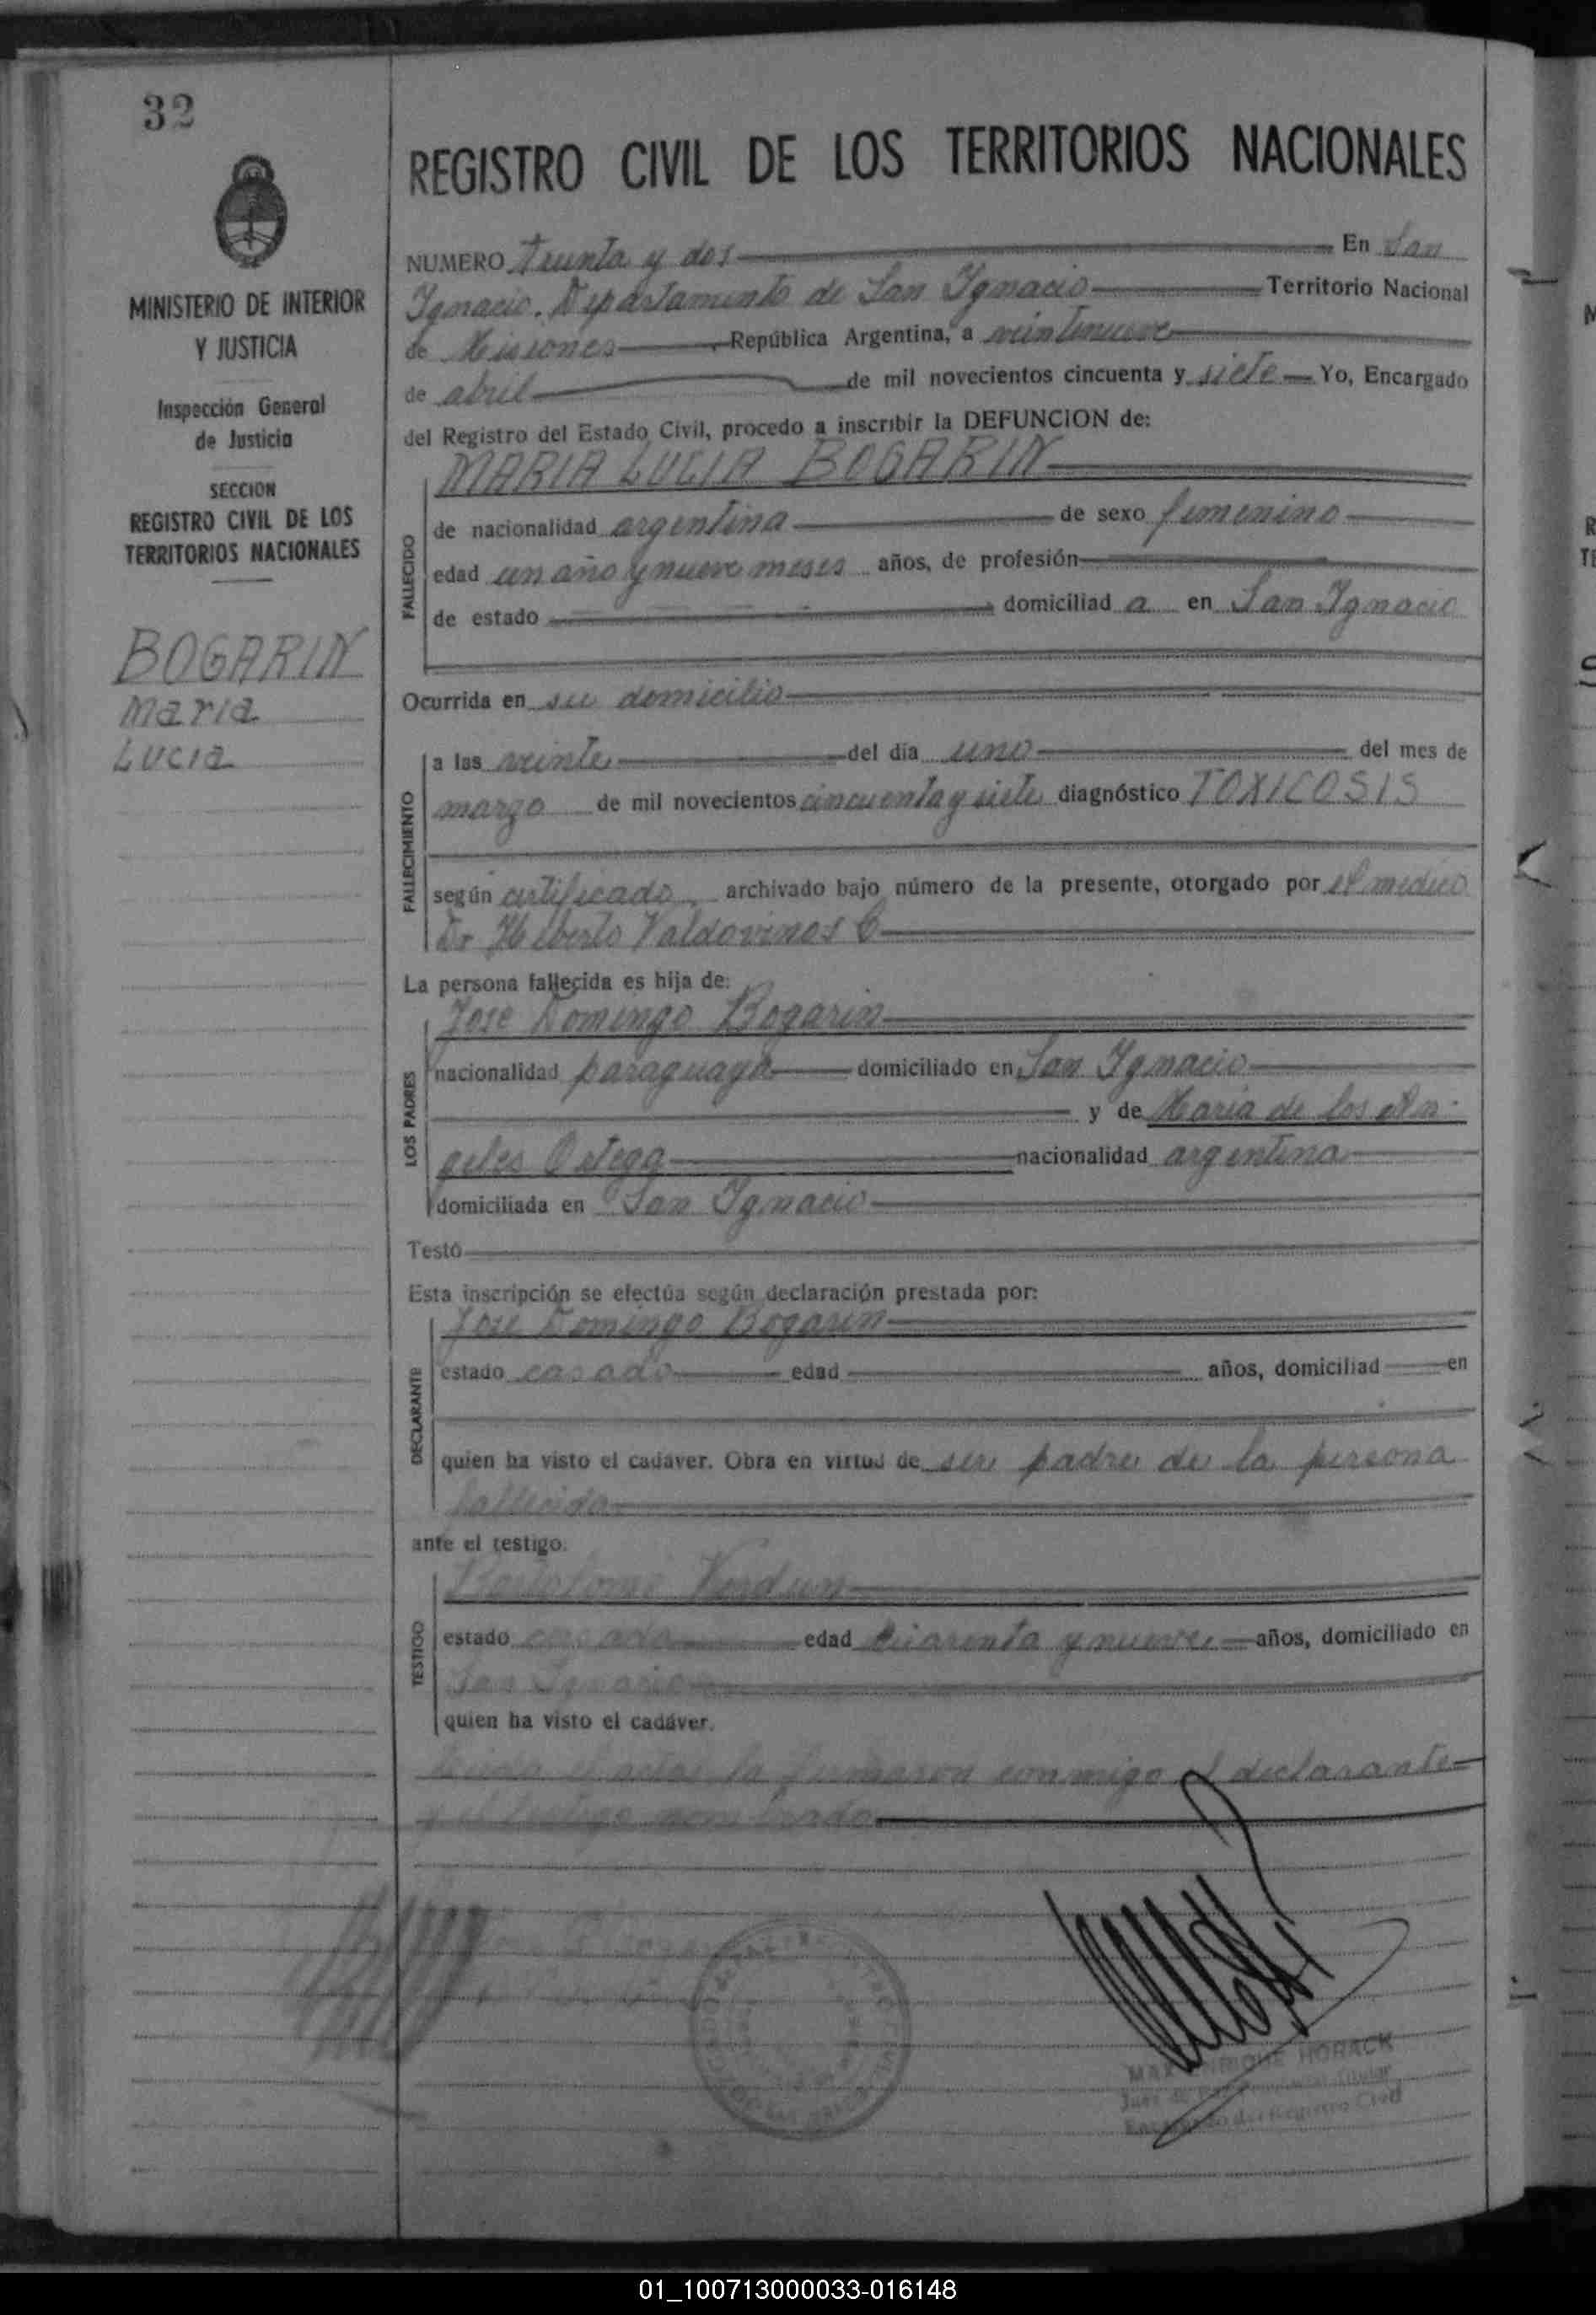 32
REGISTRO CIVIL DE LOS TERRITORIOS NACIONALES
MINISTERIO DE INTERIOR
Y JUSTICIA
Inspección General
de Justicia
SECCION
REGISTRO CIVIL DE LOS
TERRITORIOS NACIONALES
BOGARIN
Maria
Lucia
NUMERO Treinta y dos En San
Ignacio. Departamento de San Ignacio Territorio Nacional
de Misiones República Argentina, a veintinueve
de abril de mil novecientos cincuenta y siete Yo, Encargado
del Registro del Estado Civil, procedo a inscribir la DEFUNCION de:
MARIA LUCIA BOGARIN
FALLECIDO
de nacionalidad argentina de sexo femenino
edad un año y nueve meses años, de profesión
de estado domiciliad a en San Ignacio
Ocurrida en su domicilio
FALLECIMIENTO
a las veinte del día uno del mes de
marzo de mil novecientos cincuenta y siete diagnóstico TOXICOSIS
según certificado, archivado bajo número de la presente, otorgado por el medico
Dr Valdovinos C
La persona fallecida es hija de:
LOS PADRES
Jose Domingo Bogarin
nacionalidad paraguaya domiciliado en San Ignacio
y de Maria de los An-
geles Ortega nacionalidad argentina
domiciliada en San Ignacio
Testó
Esta inscripción se efectúa según declaración prestada por:
DECLARANTE
Jose Domingo Bogarin
estado casado edad años, domiciliad en
quien ha visto el cadáver. Obra en virtud de ser padre de la persona
fallecida
ante el testigo:
TESTIGO
Bartolome Verdun
estado casado edad cuarenta y nueve años, domiciliado en
San Ignacio
quien ha visto el cadáver.
Leida el acta, la firmaron conmigo el declarante
y el testigo nombrado
MAX ENRIQUE HORACK
Juez de Titular
Encargado del Registro Civil
01_100713000033-016148